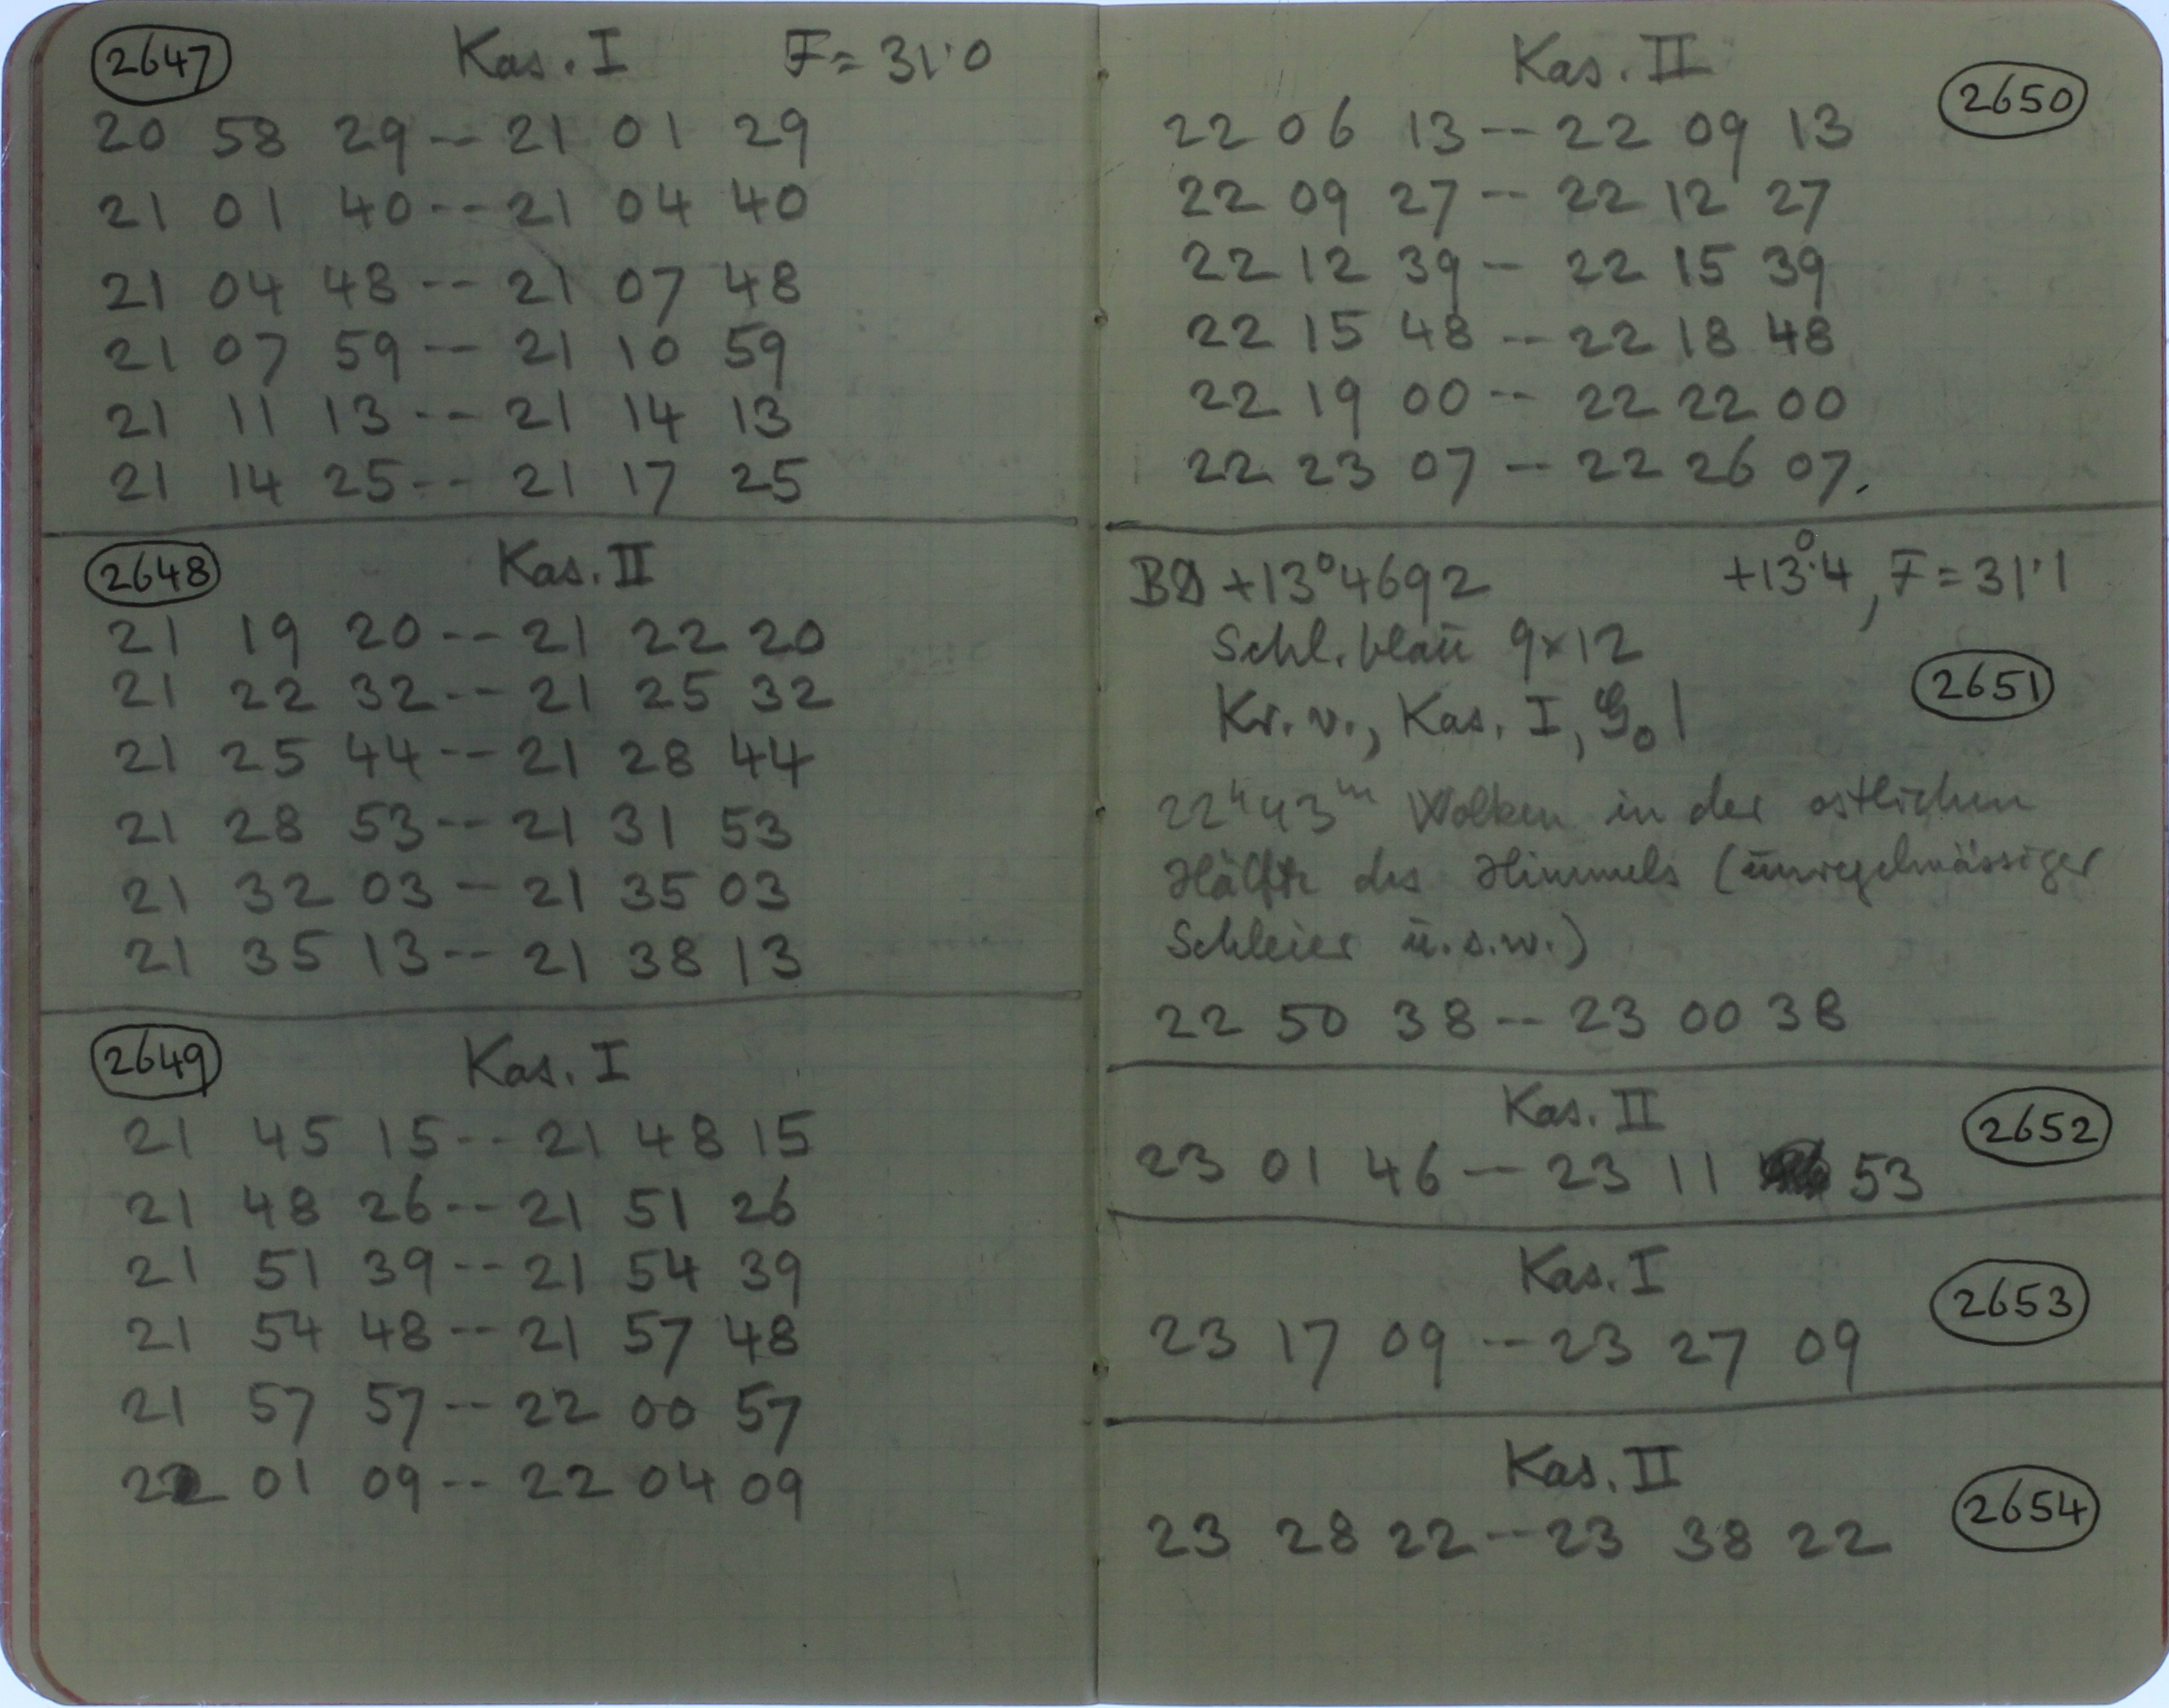 2647 Kas. I F= 31.0
20 58 29 -- 21 01 29
21 01 40 -- 21 04 40
21 04 48 -- 21 07 48
21 07 59 -- 21 10 59
21 11 13 -- 21 14 13
21 14 25 -- 21 17 25
2648 Kas. II
21 19 20 -- 21 22 20
21 22 32 -- 21 25 32
21 25 44 -- 21 28 44
21 28 53 -- 21 31 53
21 32 03 - 21 35 03
21 35 13 -- 21 38 13
2649 Kas. I
21 45 15 -- 21 48 15
21 48 26 -- 21 51 26
21 51 39 -- 21 54 39
21 54 48 -- 21 57 48
21 57 57 -- 22 00 57
22 01 09 -- 22 04 09
Kas. II 2650
22 06 13 -- 22 09 13
22 09 27 -- 22 12 27
22 12 39 - 22 15 39
22 15 48 -- 22 18 48
22 19 00 -- 22 22 00
22 23 07 -- 22 26 07.
BD +13°4692 +13°.4, F = 31.1
Schl. blau 9x12
2651
Kr. v., Kas. I,
22h43m Wolken in der östlichen
Hälfte des Himmels (unregelmässiger
Schleier u.s.w.)
22 50 38 -- 23 00 38
Kas. II 2652
23 01 46 -- 23 11 53
Kas. I 2653
23 17 09 -- 23 27 09
Kas. II 2654
23 28 22 -- 23 38 22